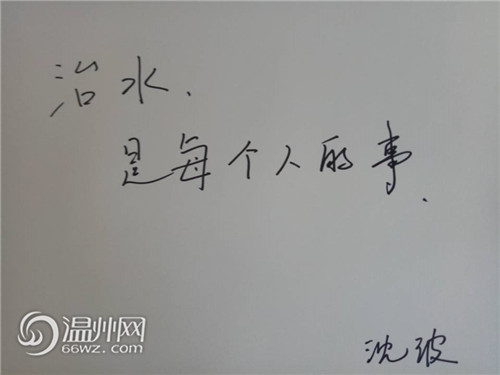 治水.
是每个人的事.
沈玻
温州网
66wz.com